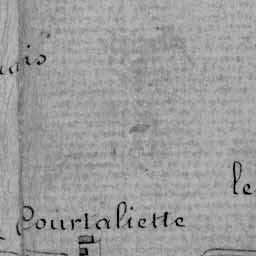 ais
le
Courtaliette